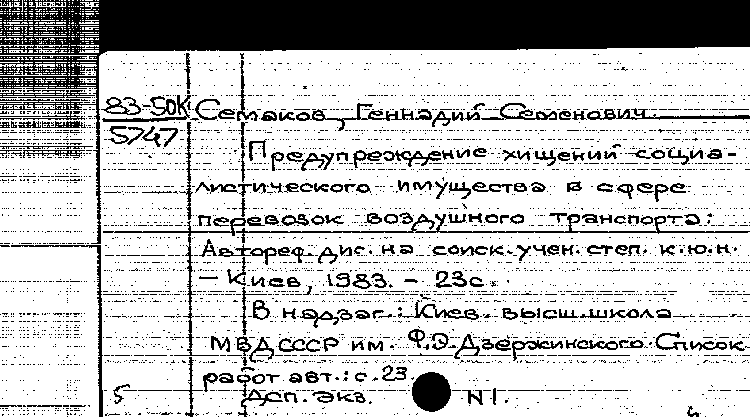 83-50К Семаков, Геннадий Семенович.
5747
Предупреждение хищений социа-
листического имущества в сфере
перевозок воздушного транспорта:
Автореф. дис. на соиск. учен. степ. к.ю.н.
— Киев, 1983. – 23с.
В надзаг.: Киев. высш. школа
МВД СССР им. Ф.Э. Дзержинского. Список
работ авт.: с. 23
5 Дсп. экз. N1.